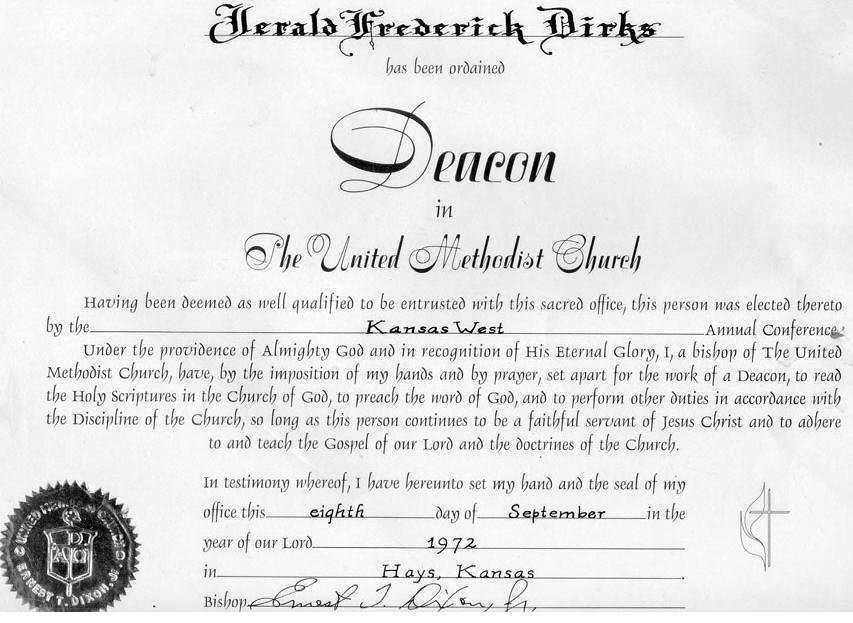 Jerald Frederick Dirks
has been ordained
Deacon
in
The United Methodist Church
Having been deemed as well qualified to be entrusted with this sacred office, this person was elected thereto
by the Kansas West Annual Conference.
Under the providence of Almighty God and in recognition of His Eternal Glory, I, a bishop of The United
Methodist Church, have, by the imposition of my hands and by prayer, set apart for the work of a Deacon, to read
the Holy Scriptures in the Church of God, to preach the word of God, and to perform other duties in accordance with
the Discipline of the Church, so long as this person continues to be a faithful servant of Jesus Christ and to adhere
to and teach the Gospel of our Lord and the doctrines of the Church.
In testimony whereof, I have hereunto set my hand and the seal of my
office this eighth day of September in the
year of our Lord 1972
in Hays, Kansas.
Bishop Ernest T. Dixon, Jr.
UNITED METHODIST CHURCH
ERNEST T. DIXON, JR.